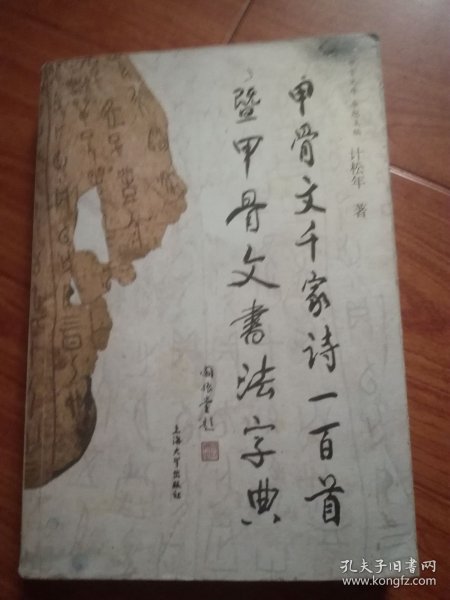 计松年 著
甲骨文千家诗一百首
暨甲骨文书法字典
上海大学出版社
孔夫子旧书网
www.kongfz.com